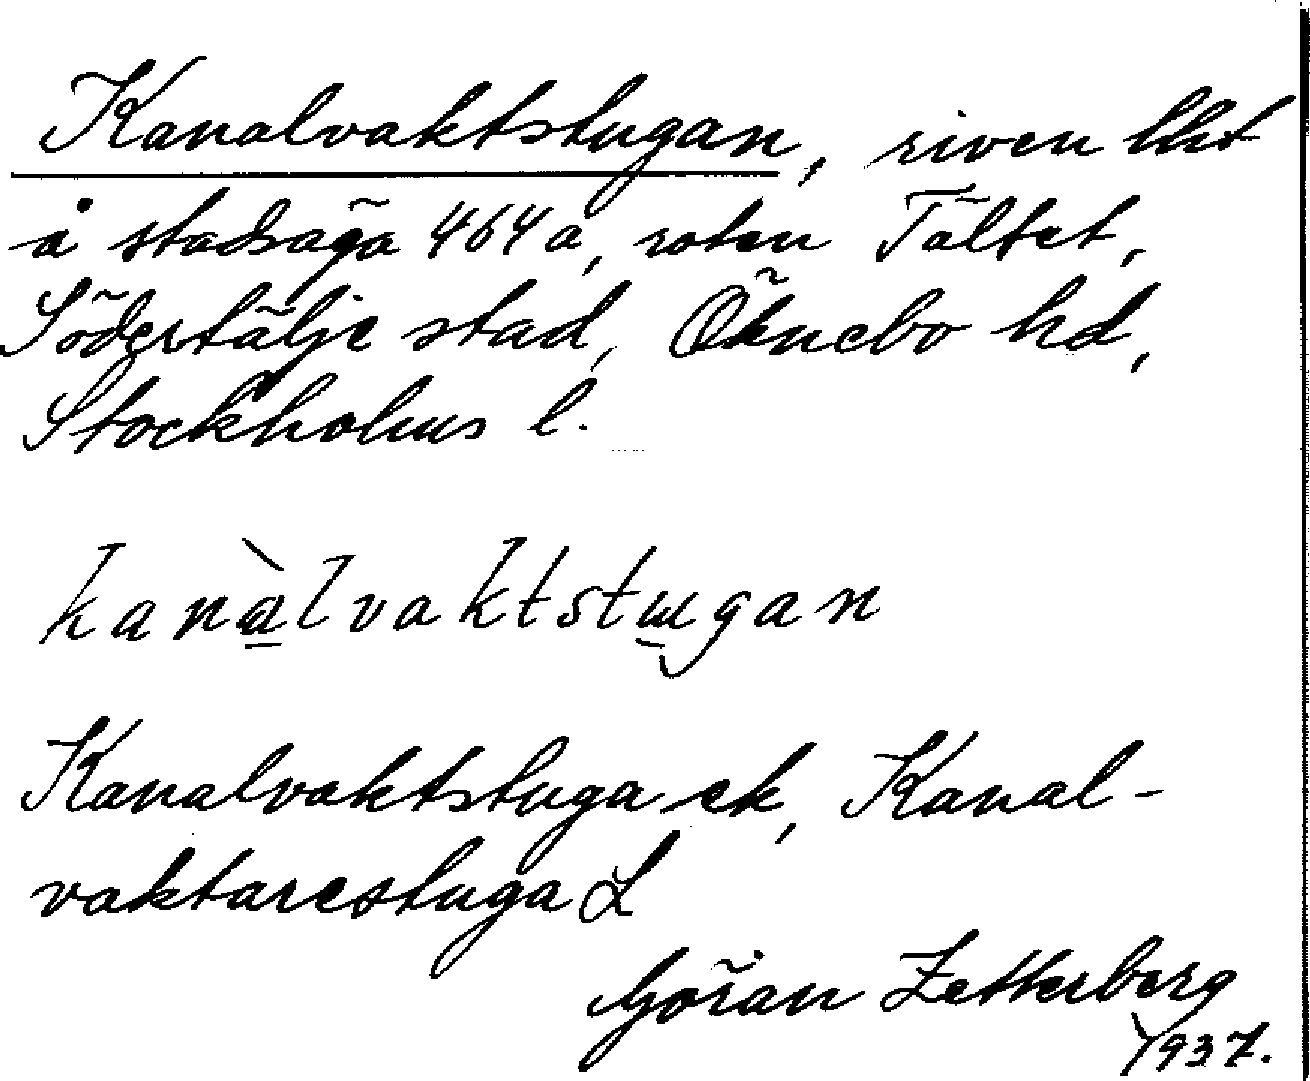 Kanalvaktstugan, riven lht
å stadsäga 464a, roten Tältet,
Södertälje stad, Öknebo hd,
Stockholms l.
kanàlvaktstɯgan
Kanalvaktstuga ek, Kanal-
vaktarestuga L
Göran Zetterberg
1937.